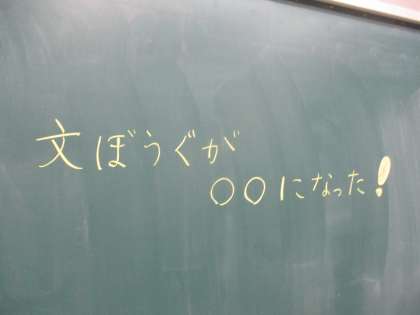 文ぼうぐが
○○になった!